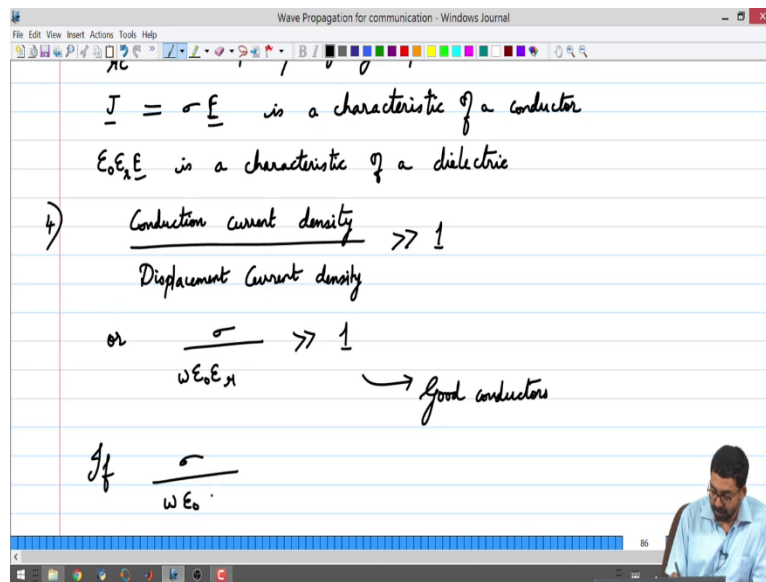 Wave Propagation for communication - Windows Journal
File Edit View Insert Actions Tools Help
J = σ E is a characteristic of a conductor
ε₀εᵣE is a characteristic of a dielectric
4) Conduction current density
≫ 1
Displacement Current density
or σ ≫ 1
ωε₀εᵣ
→ Good conductors
If σ
ωε₀
86